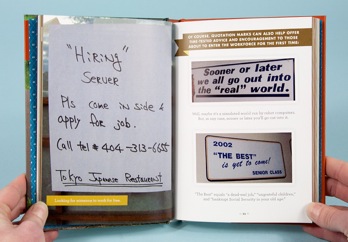 "HiRiNG"
SERVER
Pls come in side &
apply for job.
Call tel # 404-313-6655
Tokyo Japanese Restaurant
Looking for someone to work for free...
OF COURSE, QUOTATION MARKS CAN ALSO HELP OFFER
TIME TESTED ADVICE AND ENCOURAGEMENT TO THOSE
ABOUT TO ENTER THE WORKFORCE FOR THE FIRST TIME:
Sooner or later
we all go out into
the "real" world.
2002
"THE BEST"
is yet to come!
SENIOR CLASS